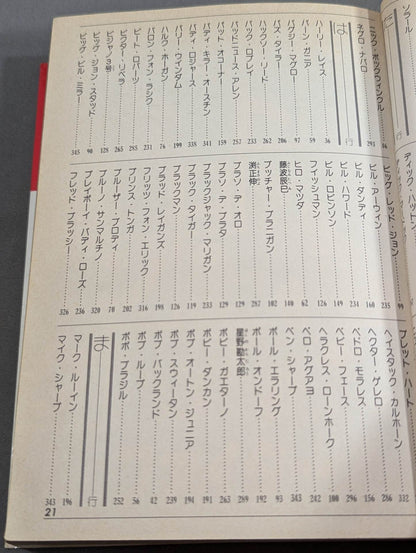 ソラール
ニック・ボックウィンクル 291
ネグロ・ナバロ 66
は行
ハーリー・レイス 36
バーン・ガニア 59
バグジー・マグロー 97
バズ・タイラー 206
バックソー・リード 262
バック・ロブレイ 233
バッドニュース・アレン 257
パット・オコーナー 159
パティ・キラー・オースチン 311
バディ・ロジャース 341
バリー・ウィンダム 199
ハルク・ホーガン 76
バロン・フォン・ラシク 231
ピート・ロバーツ 255
ビクター・リベラ 265
ビジャノ3号 128
ビッグ・ジョン・スタッド 90
ビッグ・ビル・ミラー 345
ビッグ・レッド・ジョン 99
ビル・アーウィン 235
ビル・ダンティ 160
ビル・ハワード 234
ビル・ロビンソン 149
フィッシュマン 126
ヒロ・マツダ 62
藤波辰巳 140
ブッチャー・ブラニガン 102
渕正伸 287
ブラソ・デ・オロ 129
ブラソ・デ・プラタ 129
ブラックジャック・マリガン 233
ブラック・タイガー 119
ブラックマン 126
ブラッド・レイガンズ 198
フリッツ・フォン・エリック 316
プリンス・トンガ 202
ブルーザー・ブロディ 70
ブルーノ・サンマルチノ 320
プレイボーイ・バディ・ローズ 236
フレッド・ブラッシー 326
ブレット・ハート 332
ヘイスタック・カルホーン 286
ヘクター・ゲレロ 156
ペドロ・モラレス 296
ベビー・フェース
ヘラクレス・ローンホーク 100
ペロ・アグアヨ 242
ベン・シャープ 343
ポール・エラリング 93
ポール・オンドーフ 192
星野勘太郎 269
ボビー・ガエターノ 263
ボビー・ダンカン 191
ボブ・オートン・ジュニア 194
ボブ・スウィータン 239
ボブ・バックランド 42
ボブ・ループ 56
ボボ・ブラジル 252
ま行
マーク・ルーイン 196
マイク・シャープ 343
21